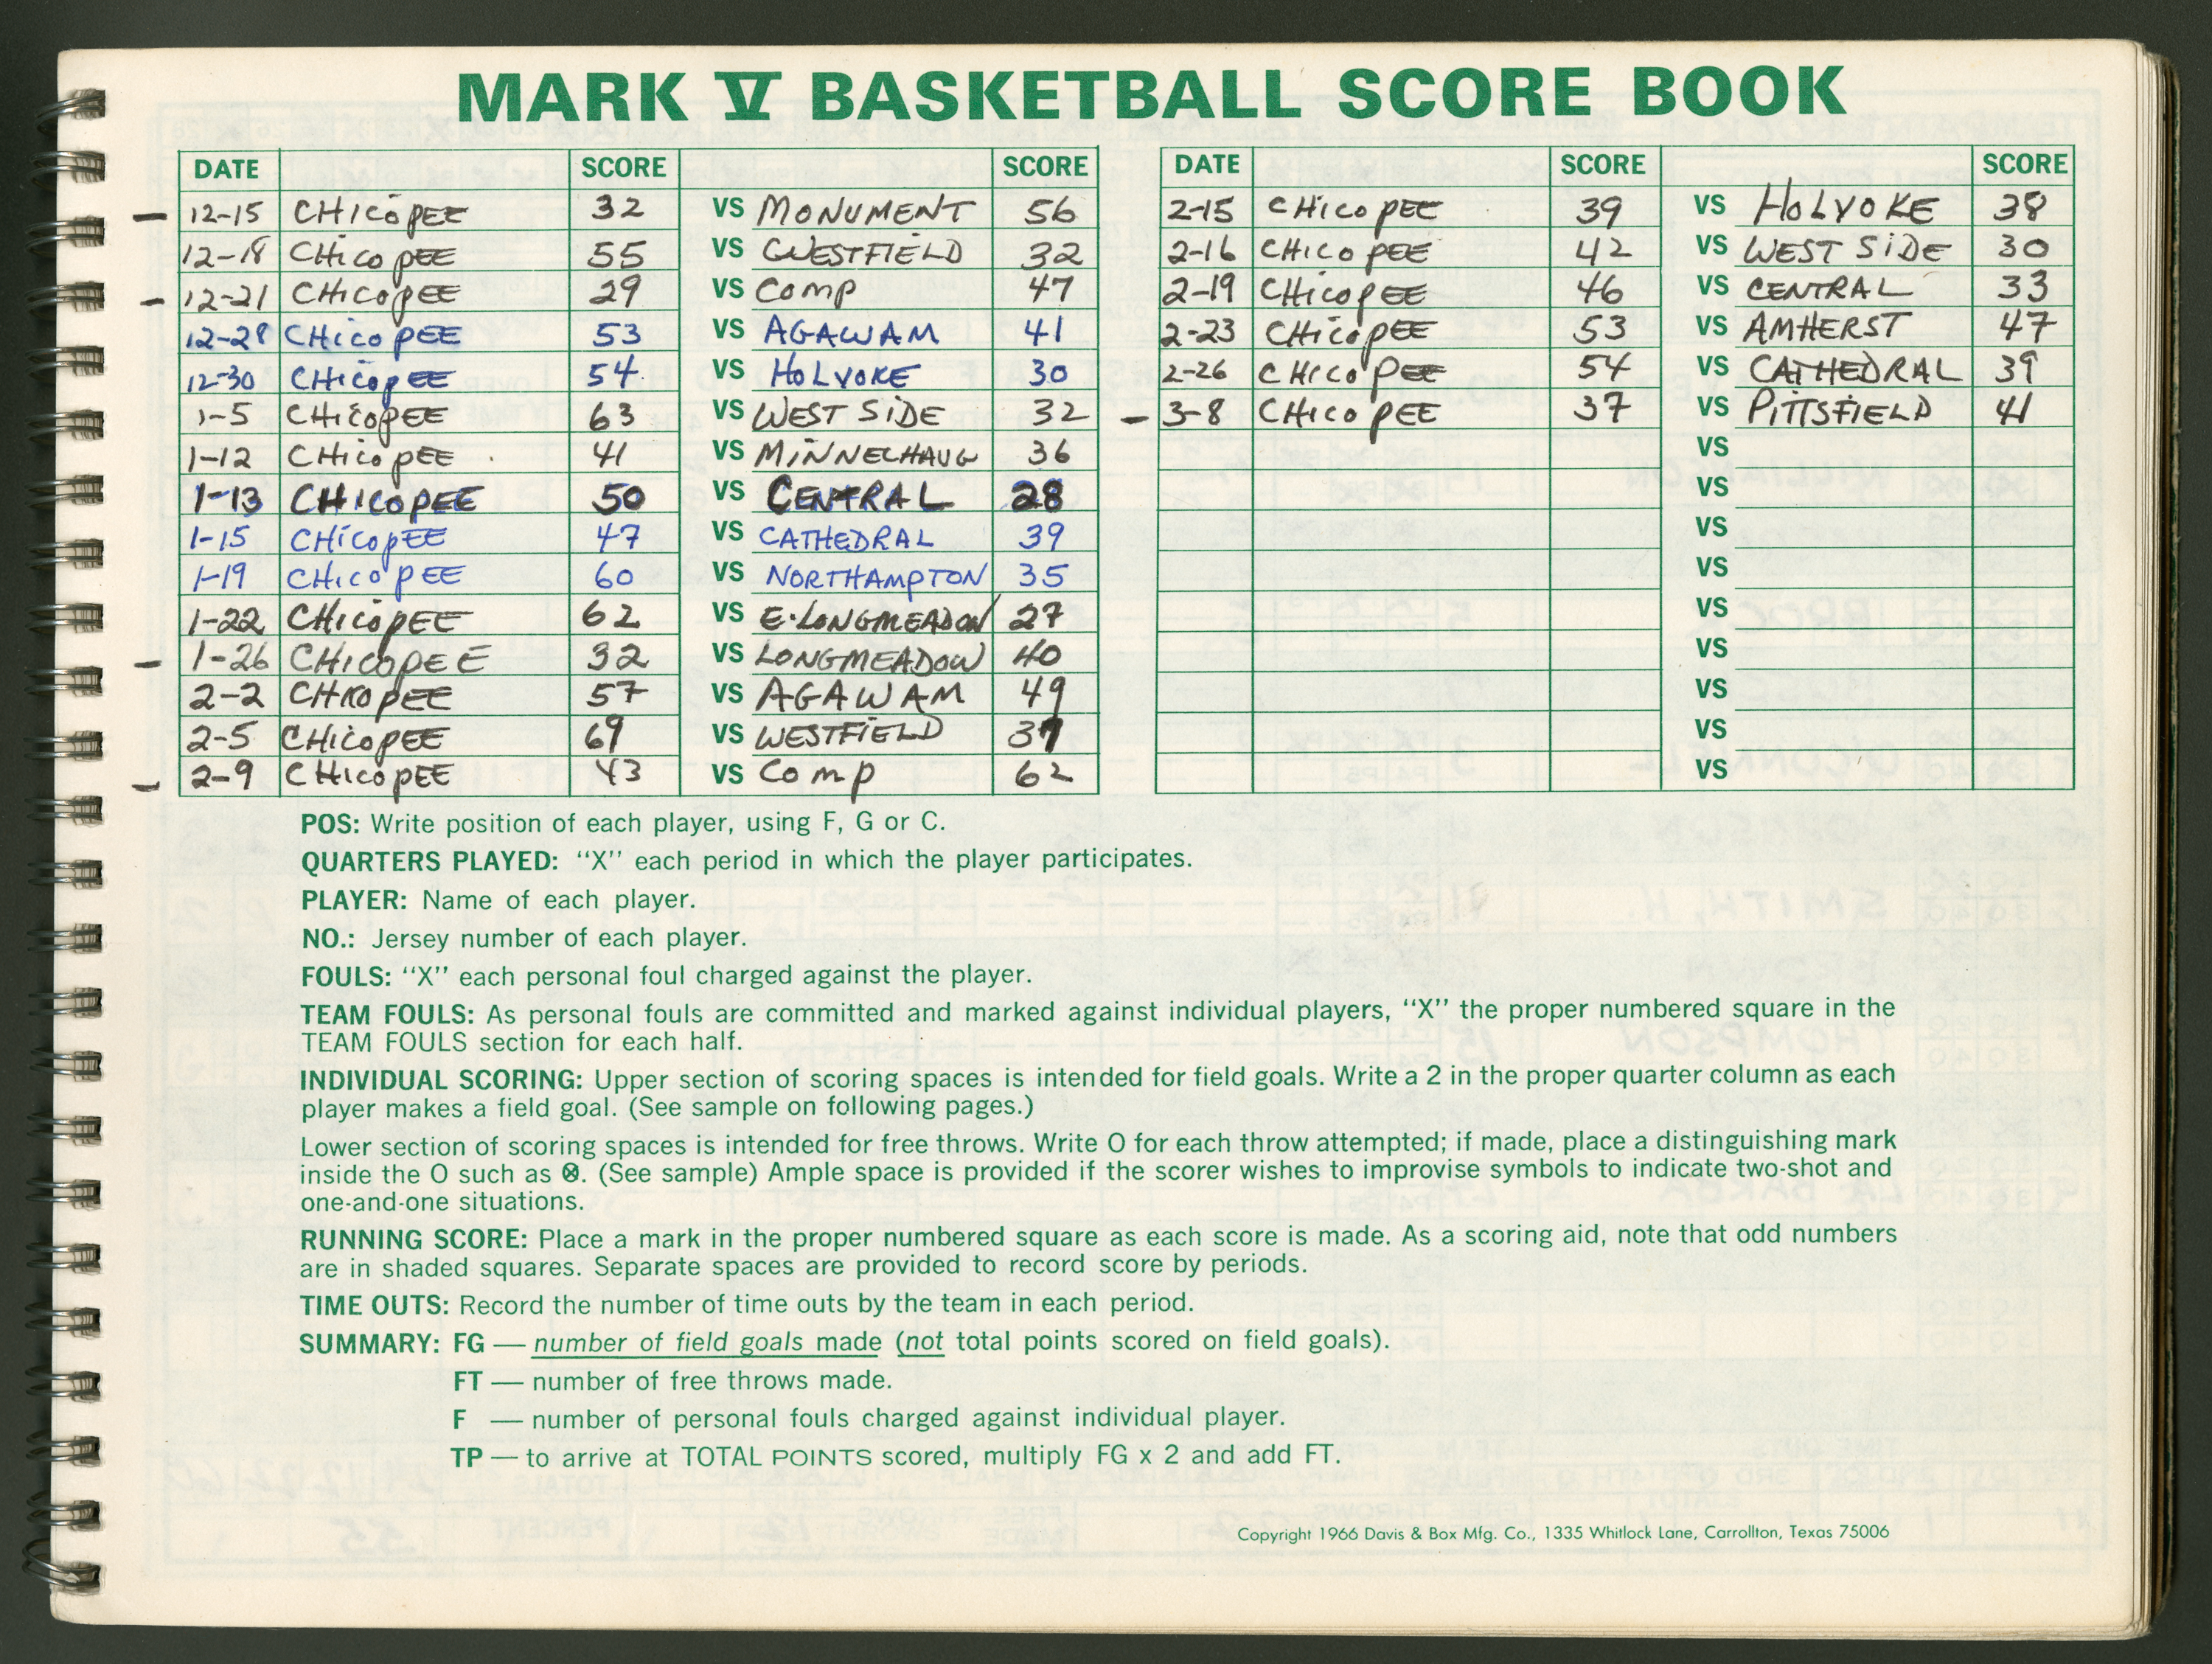 MARK V BASKETBALL SCORE BOOK
DATE SCORE SCORE
— 12-15 CHICOPEE 32 VS MONUMENT 56
12-18 CHICOPEE 55 VS WESTFIELD 32
— 12-21 CHICOPEE 29 VS COMP 47
12-28 CHICOPEE 53 VS AGAWAM 41
12-30 CHICOPEE 54 VS HOLYOKE 30
1-5 CHICOPEE 63 VS WEST SIDE 32
1-12 CHICOPEE 41 VS MINNECHAUG 36
1-13 CHICOPEE 50 VS CENTRAL 28
1-15 CHICOPEE 47 VS CATHEDRAL 39
1-19 CHICOPEE 60 VS NORTHAMPTON 35
1-22 CHICOPEE 62 VS E. LONGMEADOW 27
— 1-26 CHICOPEE 32 VS LONGMEADOW 40
2-2 CHICOPEE 57 VS AGAWAM 49
2-5 CHICOPEE 69 VS WESTFIELD 37
— 2-9 CHICOPEE 43 VS COMP 62
DATE SCORE SCORE
2-15 CHICOPEE 39 VS HOLYOKE 38
2-16 CHICOPEE 42 VS WEST SIDE 30
2-19 CHICOPEE 46 VS CENTRAL 33
2-23 CHICOPEE 53 VS AMHERST 47
2-26 CHICOPEE 54 VS CATHEDRAL 39
— 3-8 CHICOPEE 37 VS PITTSFIELD 41
VS
VS
VS
VS
VS
VS
VS
VS
VS
POS: Write position of each player, using F, G or C.
QUARTERS PLAYED: “X” each period in which the player participates.
PLAYER: Name of each player.
NO.: Jersey number of each player.
FOULS: “X” each personal foul charged against the player.
TEAM FOULS: As personal fouls are committed and marked against individual players, “X” the proper numbered square in the
TEAM FOULS section for each half.
INDIVIDUAL SCORING: Upper section of scoring spaces is intended for field goals. Write a 2 in the proper quarter column as each
player makes a field goal. (See sample on following pages.)
Lower section of scoring spaces is intended for free throws. Write O for each throw attempted; if made, place a distinguishing mark
inside the O such as ⊗. (See sample) Ample space is provided if the scorer wishes to improvise symbols to indicate two-shot and
one-and-one situations.
RUNNING SCORE: Place a mark in the proper numbered square as each score is made. As a scoring aid, note that odd numbers
are in shaded squares. Separate spaces are provided to record score by periods.
TIME OUTS: Record the number of time outs by the team in each period.
SUMMARY: FG — number of field goals made (not total points scored on field goals).
FT — number of free throws made.
F — number of personal fouls charged against individual player.
TP — to arrive at TOTAL POINTS scored, multiply FG x 2 and add FT.
Copyright 1966 Davis & Box Mfg. Co., 1335 Whitlock Lane, Carrollton, Texas 75006